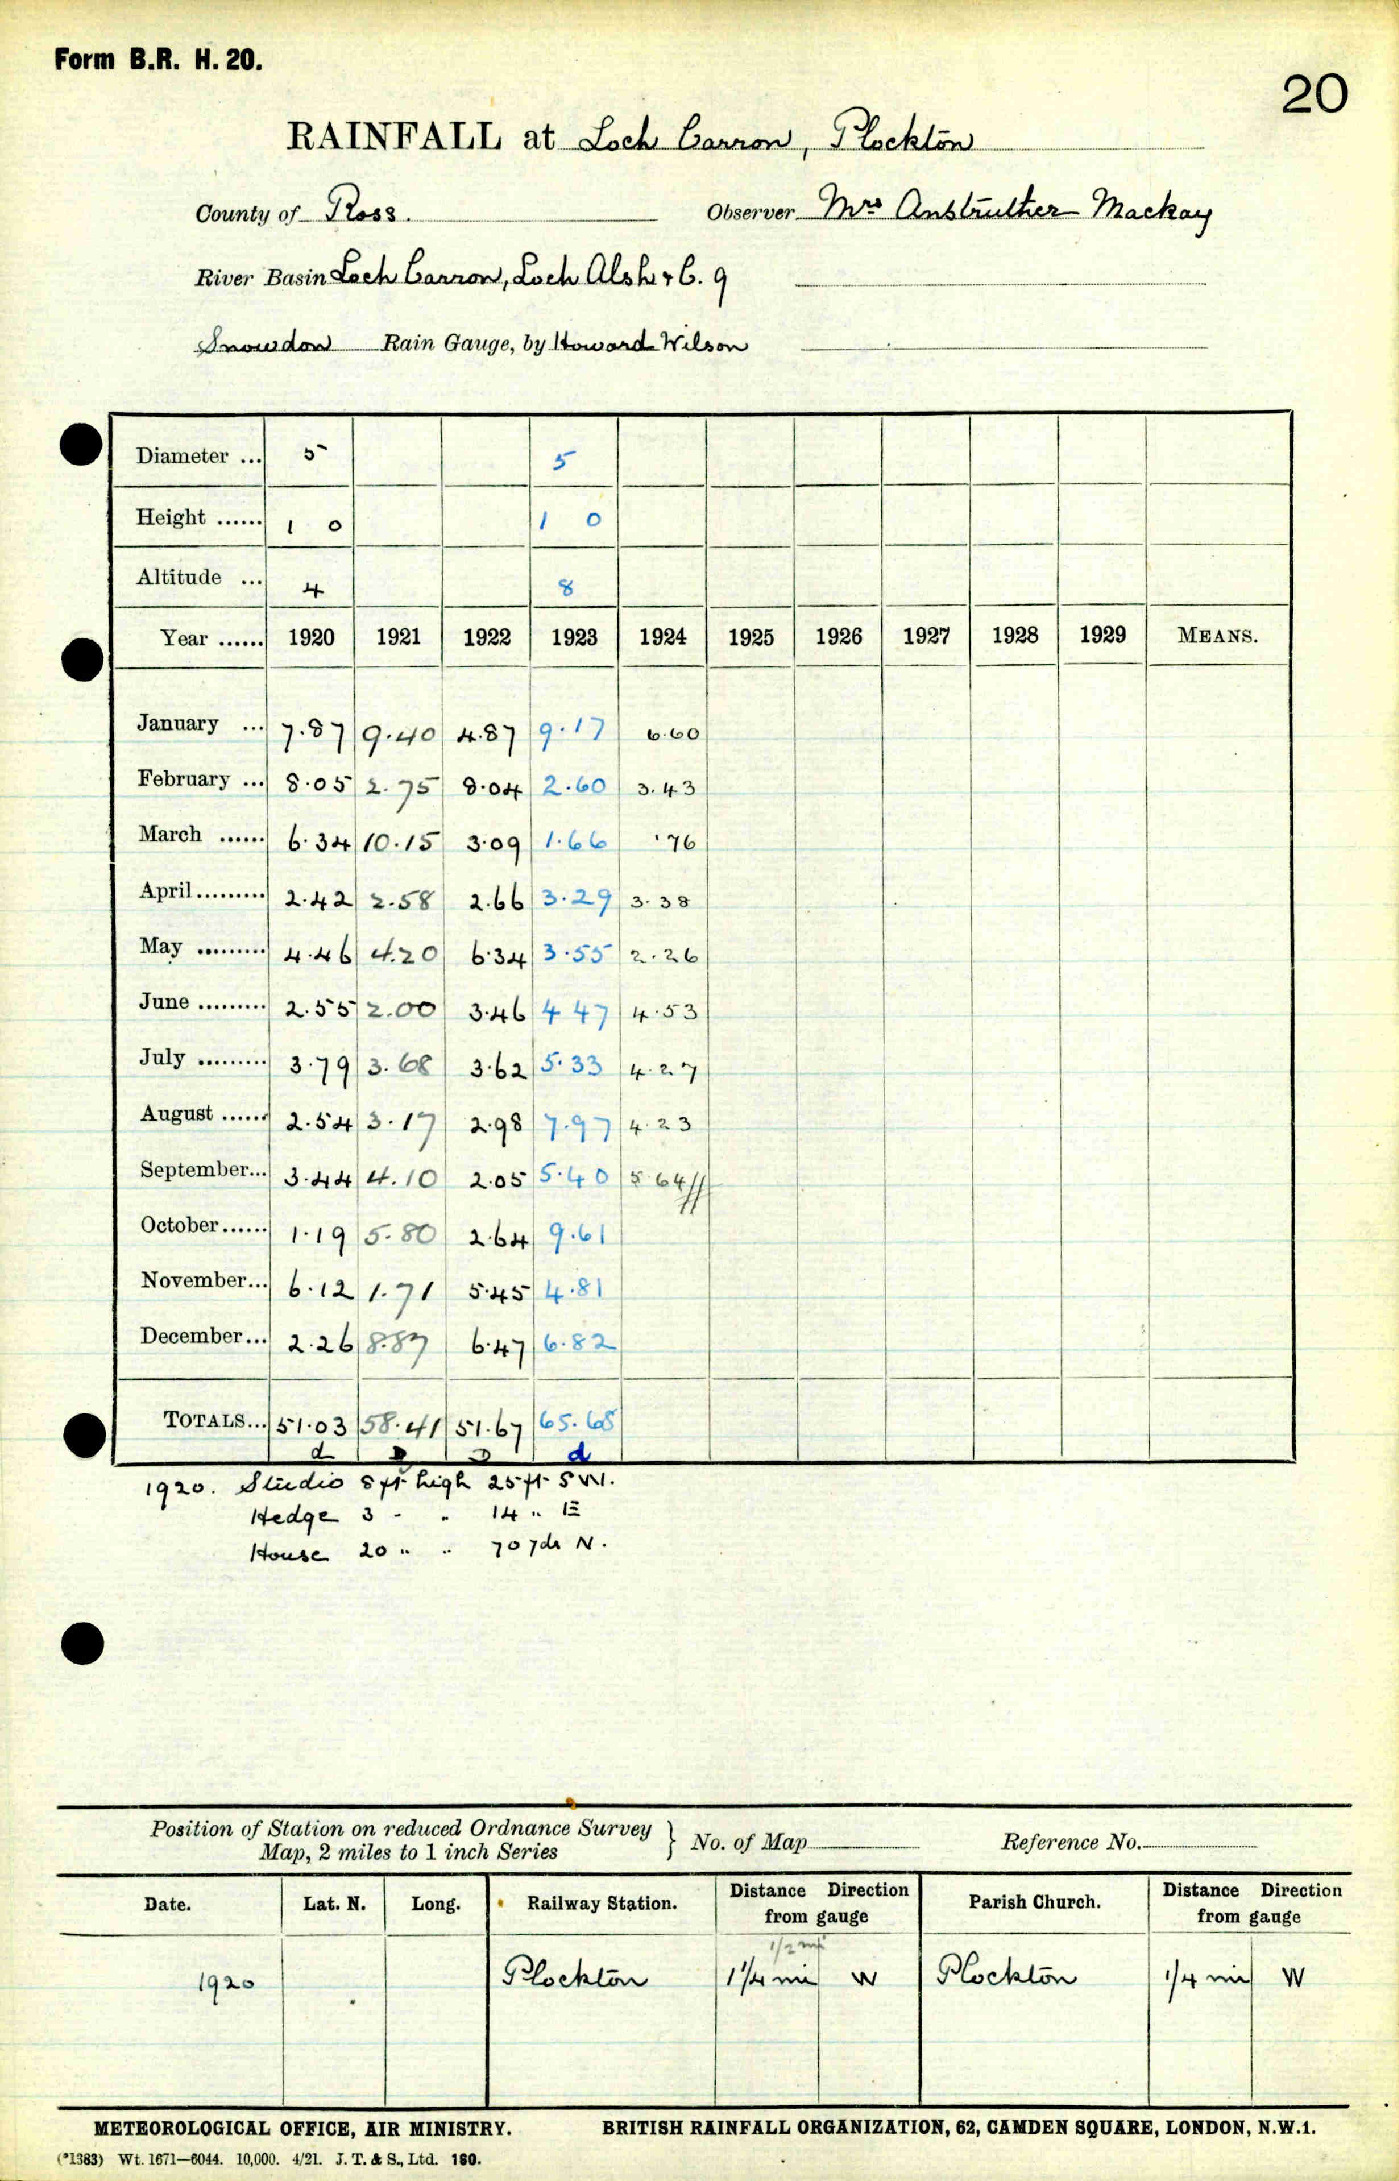 Form B.R. H. 20.
20
RAINFALL at Loch Carron, Plockton
County of Ross. Observer Mrs Anstruther Mackay
River Basin Loch Carron, Loch Alsh & C. 9
Snowdon Rain Gauge, by Howard Wilson
Diameter ... 5 5
Height ...... 1 0 1 0
Altitude ... 4 8
Year ...... 1920 1921 1922 1923 1924 1925 1926 1927 1928 1929 MEANS.
January ... 7.87 9.40 4.87 9.17 6.60
February ... 8.05 2.75 8.04 2.60 3.43
March ...... 6.34 10.15 3.09 1.66 .76
April......... 2.42 2.58 2.66 3.29 3.38
May ......... 4.46 4.20 6.34 3.55 2.26
June ......... 2.55 2.00 3.46 4 47 4.53
July ......... 3.79 3.68 3.62 5.33 4.27
August ...... 2.54 3.17 2.98 7.97 4.23
September... 3.44 4.10 2.05 5.40 5 64
October...... 1.19 5.80 2.64 9.61
November... 6.12 1.71 5.45 4.81
December... 2.26 8.87 6.47 6.82
TOTALS... 51.03 58.41 51.67 65.68
d D D d
1920. Studio 8 ft high 25 ft SW.
Hedge 3 " " 14 " E
House 20 " " 70 yds N.
Position of Station on reduced Ordnance Survey
Map, 2 miles to 1 inch Series } No. of Map Reference No.
Date. Lat. N. Long. Railway Station. Distance Direction from gauge Parish Church. Distance Direction from gauge
1/2 mi
1920 Plockton 1 1/4 mi W Plockton 1/4 mi W
METEOROLOGICAL OFFICE, AIR MINISTRY. BRITISH RAINFALL ORGANIZATION, 62, CAMDEN SQUARE, LONDON, N.W.1.
(*1383) Wt. 1671—6044. 10,000. 4/21. J. T. & S., Ltd. 180.